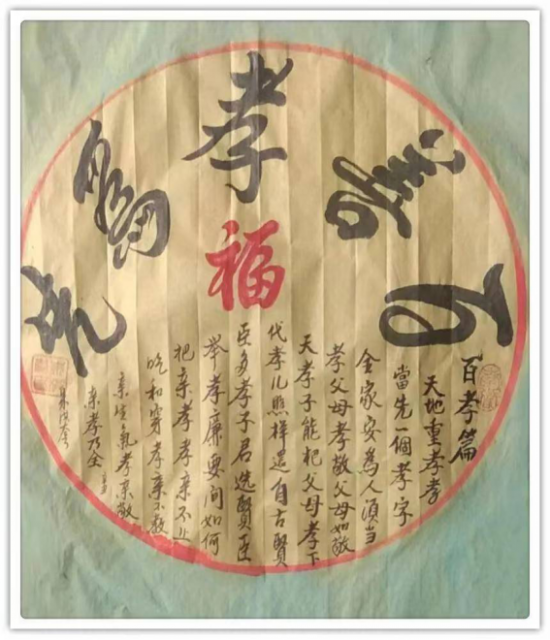 百善孝為先
福
百孝篇
天地重孝孝
當先一個孝字
全家安為人須當
孝父母孝敬父母如敬
天孝子能把父母孝下
代孝儿照样還自古賢
臣多孝子君选賢臣
举孝廉要问如何
把亲孝孝亲不止
吃和穿孝亲不教
亲生氣孝亲敬
亲孝乃全